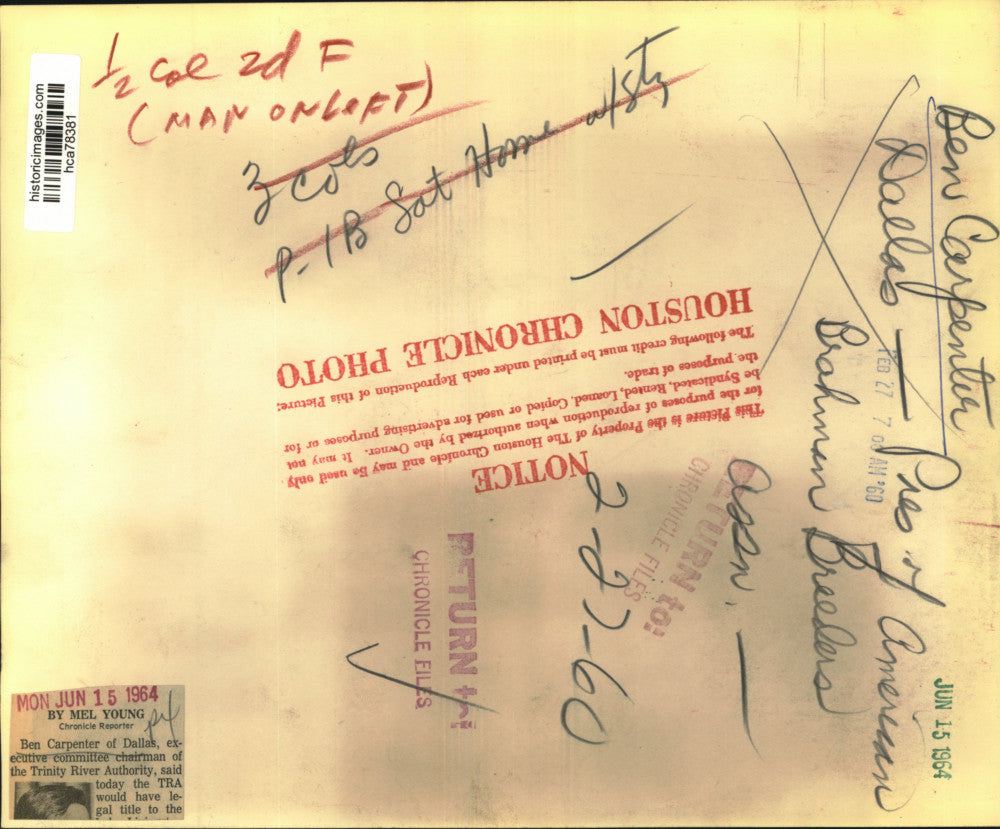 historicimages.com
hca78381
1/2 Col 2d F
(MAN ON LEFT)
3 cols
P-1B Sat Home w/sty
Ben Carpenter
Dallas — Pres of American
Brahman Breeders
Assn. —
FEB 27 7 AM '60
HOUSTON CHRONICLE PHOTO
The following credit must be printed under each Reproduction of this Picture:
NOTICE
This Picture is the Property of The Houston Chronicle and may be used only
for the purposes of reproduction when authorized by the Owner. It may not
be Syndicated, Rented, Loaned, Copied or used for advertising purposes or for
the purposes of trade.
RETURN to:
CHRONICLE FILES
2-27-60
RETURN to:
CHRONICLE FILES
JUN 15 1964
MON JUN 15 1964
BY MEL YOUNG
Chronicle Reporter
Ben Carpenter of Dallas, ex-
ecutive committee chairman of
the Trinity River Authority, said
today the TRA
would have le-
gal title to the